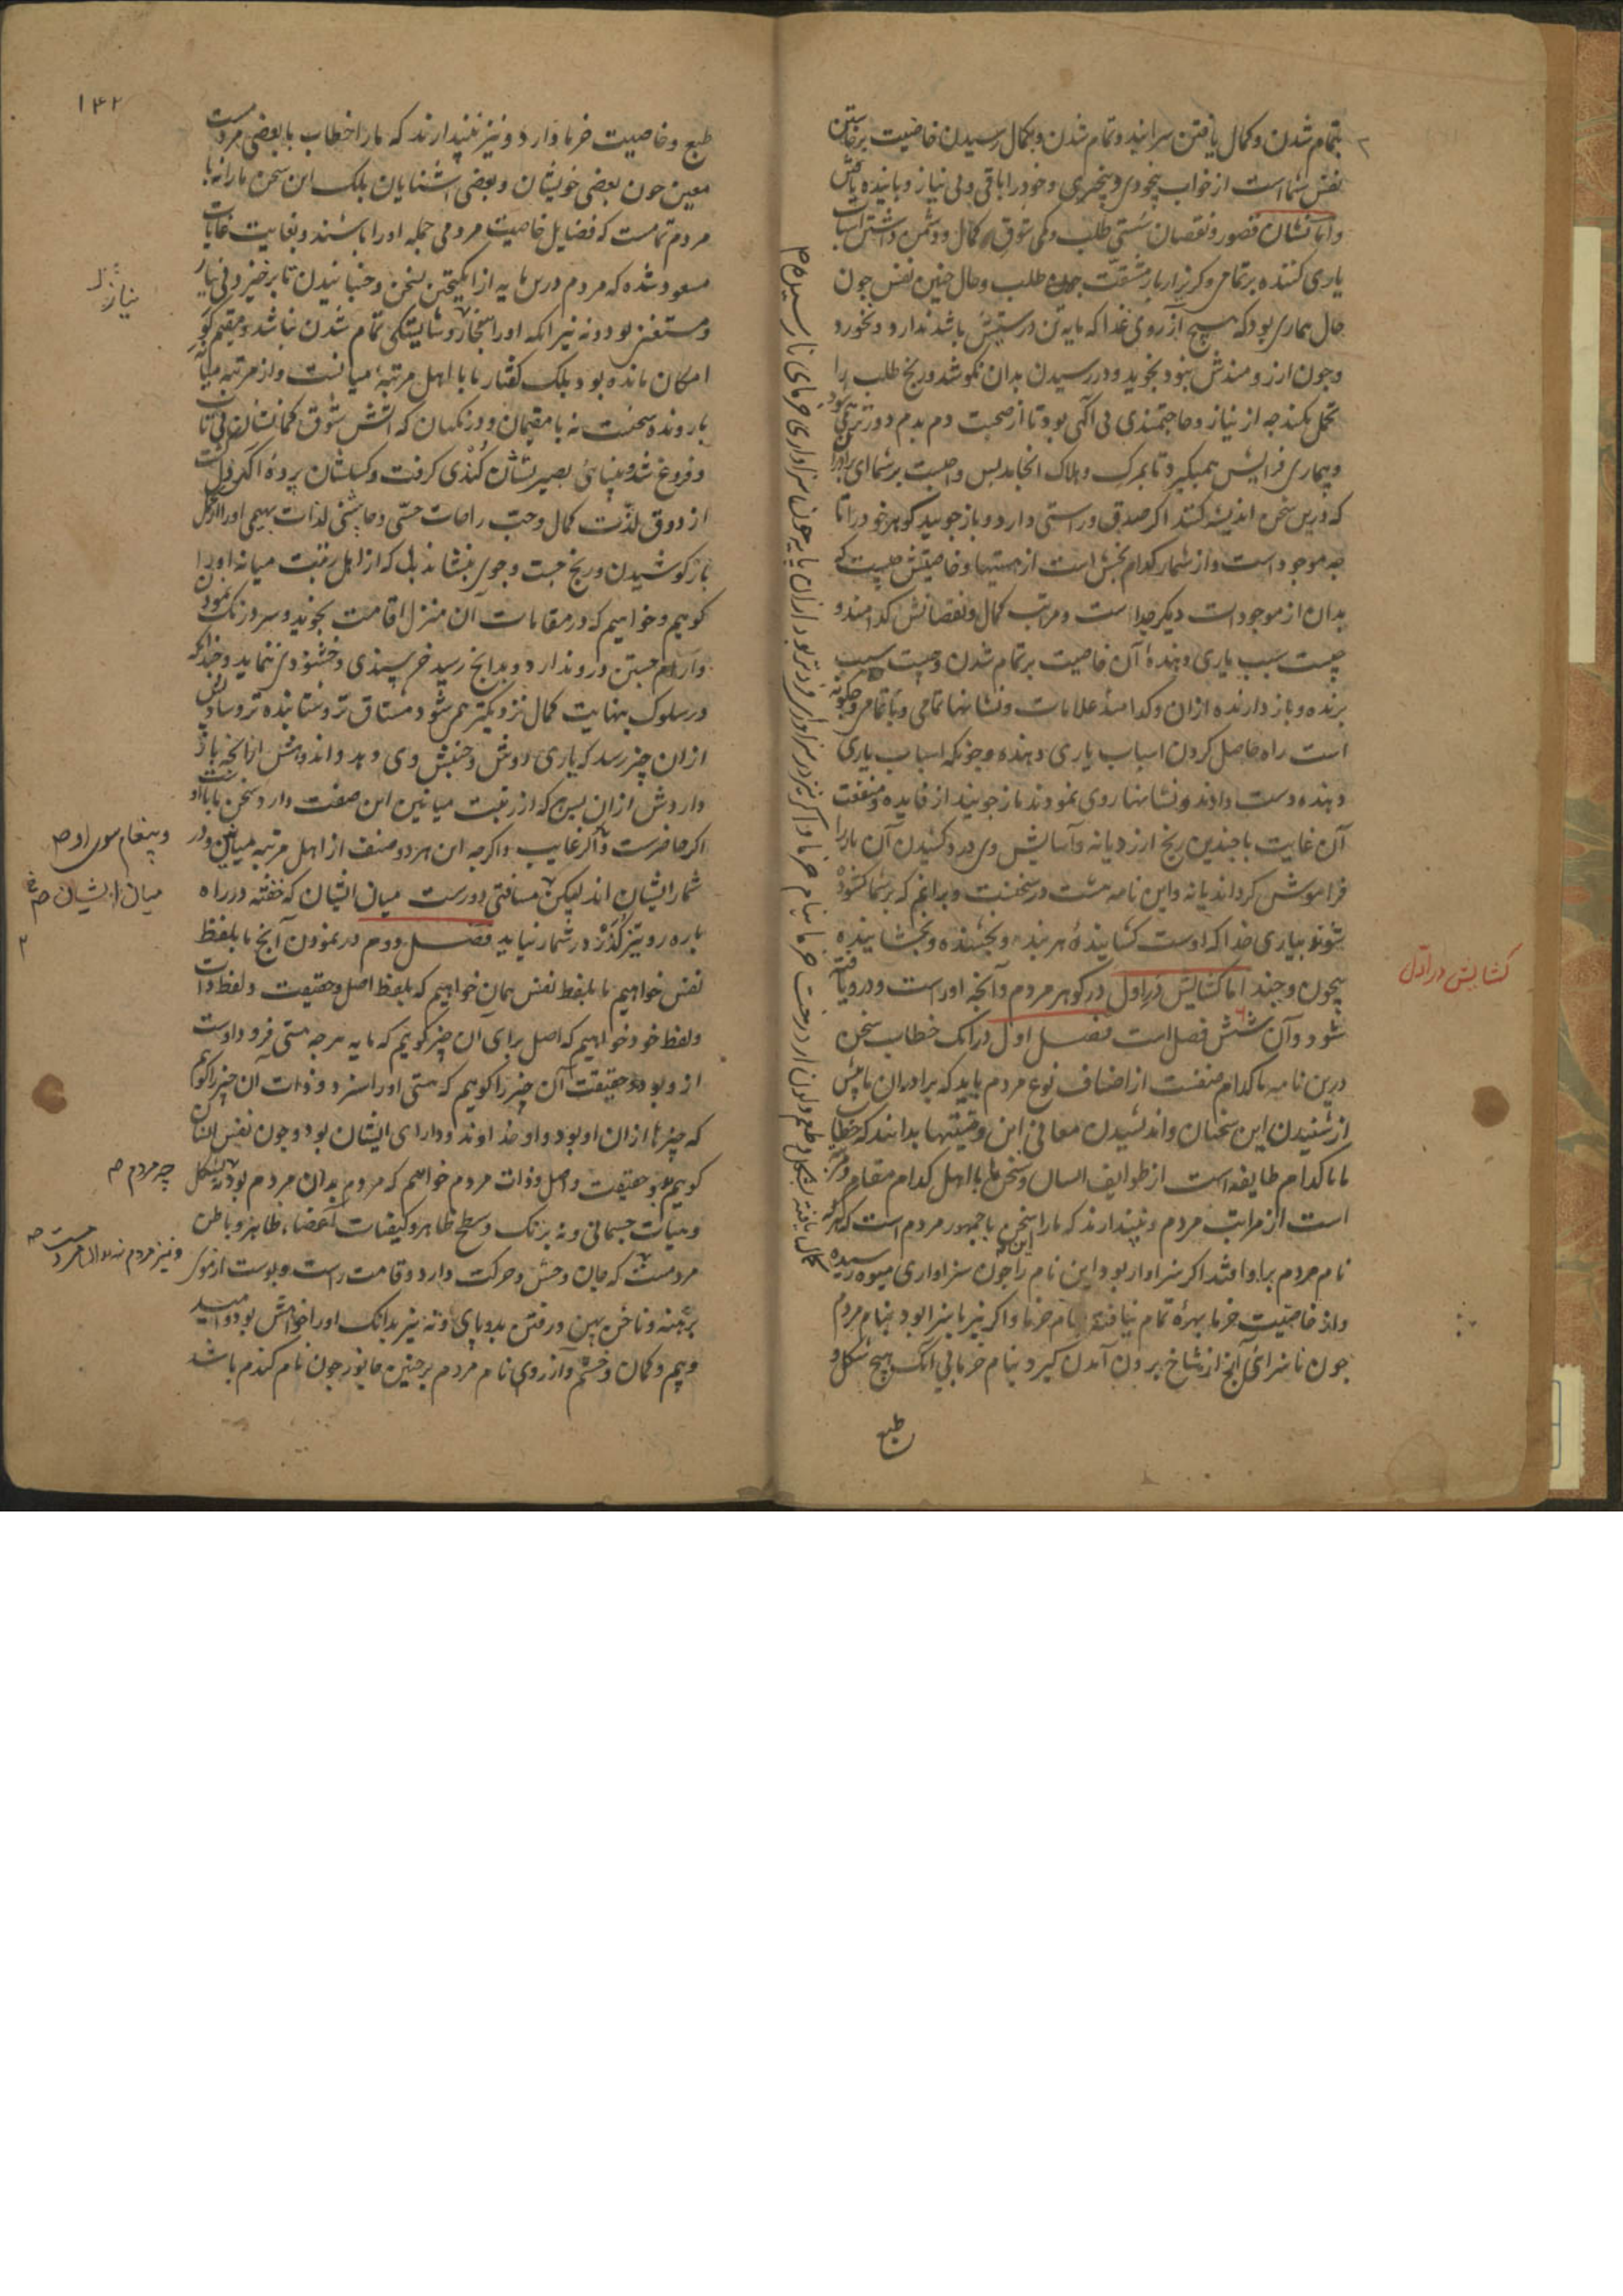 بتمام شدن و کمال یافتن سرایند و تمام شدن و بکمال رسیدن خاصیت برخاستن
نفس شماست از خواب بیخودی و بیخبری و خود را باقی و بی نیاز و پاینده یافتن
و اما نشان قصور و نقصان سستی طلب و کمی شوق کمال و دشمن داشتن اسباب
یاری کننده بر تمامی و کریز از بار مشقت طلب و حال چنین نفس چون
حال بیماری بود که هیچ آرزوی غذا که مایه تن درستیش باشد ندارد و نخورد
و چون آرزومندش نبود نجوید و در رسیدن بدان نکوشد و رنج طلب را
تحمل نکند چه از نیاز و حاجتمندی بی آکهی بود تا از صحت دم بدم دورتر می شود
و بیماری فزایش همیکیرد تا بمرک و هلاک انجامد پس واجبست بر شما ای برادران
که درین سخن اندیشه کنید اکر صدق و راستی دارد و باز جویید کوهر خود را تا
چه موجود است و از شمار کدام بخش است از هستیها و خاصیتش چیست که
بدان از موجودات دیکر جداست و مراتب کمال و نقصانش کدامند و
چیست سبب یاری دهنده آن خاصیت بر تمام شدن و چیست سبب
برنده و باز دارنده از آن و کدامند علامات و نشانهای تمامی و ناتمامی و چکونه
است راه حاصل کردن اسباب یاری دهنده و چونکه اسباب یاری
دهنده دست دادند و نشانها روی نمودند باز جویند از فایده و منفعت
آن غایت تا چندین رنج ارزد یا نه و آسایش وی درد کشیدن آن بار را
فراموش کرداند یا نه و این نامه مشت در سخنست و بدانم که بر شما کشوده
شوند بیاری خدا که اوست کشاینده هر بند و بخشنده و بخشاینده
بیچون و چند اما کشایش در اول در کوهر مردم و آنچه اوراست و درو یافته
شود و آن شش فصل است فصل اول در آنک خطاب سخن
درین نامه با کدام صنفست از اصناف نوع مردم باید که برادران ما پیش
از شنیدن این سخنان و اندیشیدن معانی این وقیقتها بدانند که خطاب
ما با کدام طایفه است از طوایف انسان و سخن ما با اهل کدام مقام و مرتبه
است از مراتب مردم و نپندارند که ما را سخن با جمهور مردم است که هر که
نام مردم برو افتد اکر سزاوار بود این نام را چون سزاواری میوه رسیده
و از خاصیت خرما بهره تمام نیافته بنام خرما و اکر نیز ناسزا بود بنام مردم
چون ناسزائی آنچ از شاخ برون آمدن کیرد بنام خرما بی آنک هیچ شکل و
طبع
کشایش در اول
۱۴۲
طبع و خاصیت خرما دارد و نیز نپندارند که ما را خطاب با بعضی مردمست
معین چون بعضی خویشان و بعضی آشنایان بلک این سخن ما را نه با
مردم تمامست که فضایل خاصیت مردمی جمله او را باشند و بغایت غایات
مسعود شده که مردم درس مایه از انکیختن بسخن و جنبانیدن تا برخیزد بی نیاز
و مستغنی بود و نه نیز آنکه او را هنجار و شایستکی تمام شدن نباشد و مقیم کور
امکان مانده بود بلک کفتار ما با اهل مرتبه میانست و از مرتبه میانه
با رونده سخنست نه با مقیمان و درنکیان که آتش شوق کمالشان بی تاب
و فروغ شد و بینائی بصیرتشان کندی کرفت و کسلشان پرده آکهی دل کشت
از ذوق لذت کمال و حب راحات حسی و چاشنی لذات بهیمی او را از دل
بار کوشیدن و رنج جست و جوی بنشاند بلی که از اهل رتبت میانه او را
کوییم و خواهیم که در مقامات آن منزل اقامت نجوید و سر درنک نمود
و آرام جستن درو ندارد و بدانچ رسید خرسندی و خشنودی ننماید و چندانکه
در سلوک بنهایت کمال نزدیکتر همی شود مشتاق تر و شتابنده تر و ساز پس
از آن چیز رسد که یاری روش و جنبش وی دهد و اندوهش از آنچه باز
داردش از آن پس هر که از رتبت میانین این صفت دارد سخن ما با اوست
اکر حاضرست و اکر غایب و اکرچه این هر دو صنف از اهل مرتبه میانین در
شمار ایشان اند لیکن مسافتی دورست میان ایشان که خفته در راه
با ره رو تیز کذر در شمار نیاید فصل دوم در نمودن آنچ ما بلفظ
نفس خواهیم ما بلفظ نفس همان خواهیم که بلفظ اصل و حقیقت و لفظ ذات
و لفظ خود خواهیم که اصل برای آن چیز کوییم که مایه هر چه هستی فرود اوست
ازو بود و حقیقت آن چیز را کوییم که هستی او را سزد و ذات آن چیز را کوییم
که چیزها از آن او بود و او خداوند و دارای ایشان بود و چون نفس انسان
کوییم و حقیقت و اصل و ذات مردم خواهیم که مردم بدان مردم بود نه بشکل
و هیات جسمانی و نه برنک و سطح ظاهر و کیفیات اعضاء ظاهر و باطن
مردمست که جان و حس و حرکت دارد و قامت راست و پوست از موی
برهنه و ناخن پهن و رفتن بدو پای و نه نیز بدانک او را خواهش بود و امید
و بیم و کمان و خشم و از روی نام مردم برچنین جانور چون نام کندم باشد
نیاز
و پیغام سوی او صح
میان ایشان صح
چه مردم صح